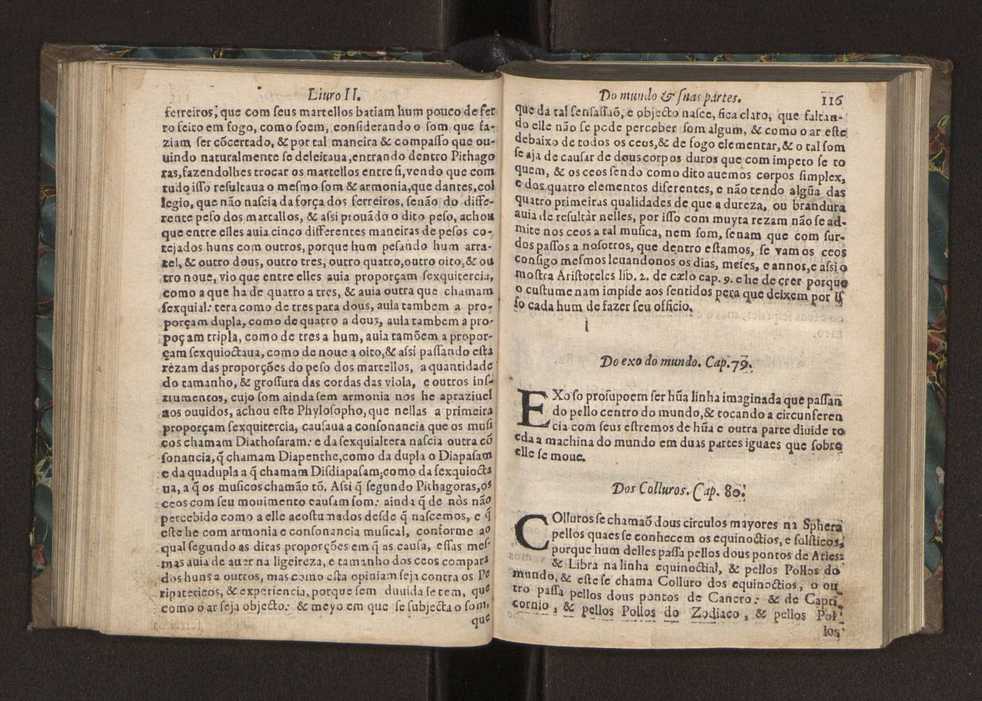 Liuro II.
ferreiros, que com seus martellos batiam hum pouco de fer
ro feito em fogo, como soem, considerando o som que fa-
ziam ser cõcertado, & por tal maneira & compasso que ou-
uindo naturalmente se deleitaua, entrando dentro Pithago
ras, fazendolhes trocar os martellos entre si, vendo que com
tudo isso resultaua o mesmo som & armonia, que dantes, col
legio, que não nascia da força dos ferreiros, senão do diffe-
rente peso dos martallos, & assi prouãdo o dito peso, achou
que entre elles auia cinco differentes maneiras de pesos co-
tejados huns com outros, porque hum pesando hum arra-
tel, & outro dous, outro tres, outro quatro, outro oito, & ou
tro noue, vio que entre elles auia proporçam sexquitercia,
como a que ha de quatro a tres, & auia outra que chamam
sexquialtera como de tres para dous, auia tambem a pro-
porçam dupla, como de quatro a dous, auia tambem a pro-
porçam tripla, como de tres a hum, auia tambẽm a propor-
çam sexquioctaua, como de noue a oito, & assi passando esta
rezam das proporções do peso dos martellos, a quantidade
do tamanho, & grossura das cordas das viola, e outros ins-
trumentos, cujo som ainda sem armonia nos he apraziuel
aos ouuidos, achou este Phylosopho, que nellas a primeira
proporçam sexquitercia, causaua a consonancia que os musi
cos chamam Diathosaram: e da sexquialtera nascia outra cõ
sonancia, q̃ chamam Diapenthe, como da dupla o Diapasam
e da quadupla a q̃ chamam Disdiapasam, como da sexquiocta
ua, a q̃ os musicos chamão tõ. Assi q̃ segundo Pithagoras, os
ceos com seu mouimento causam som: ainda q̃ de nòs não
percebido como a elle acostumados desde q̃ nascemos, e q̃
este he com armonia e consonancia musical, conforme ao
qual segundo as ditas proporções em q̃ as causa, essas mes
mas auia de auer na ligeireza, e tamanho dos ceos compara
dos huns a outros, mas como esta opiniam seja contra os Pe
ripateticos, & experiencia, porque sem duuida se tem, que
como o ar seja objecto: & meyo em que se subjecta o som,
que
Do mundo & suas partes. 116
que da tal sensassaõ, e objecto nasce, fica claro, que faltan-
do elle não se pode perceber som algum, & como o ar este
debaixo de todos os ceos, & de fogo elementar, & o tal som
se aja de causar de dous corpos duros que com impeto se to
quem, & os ceos sendo como dito auemos corpos simplex,
e dos quatro elementos diferentes, e não tendo algũa das
quatro primeiras qualidades de que a dureza, ou brandura
auia de resultar nelles, por isso com muyta rezam não se ad-
mite nos ceos a tal musica, nem som, senam que com sur-
dos passos a nosotros, que dentro estamos, se vam os ceos
consigo mesmos leuandonos os dias, meses, e annos, e assi o
mostra Aristoteles lib. 2. de cælo cap. 9. e he de crer porque
o custume nam impide aos sentidos pera que deixem por is
so cada hum de fazer seu officio.
Do exo do mundo. Cap. 79.
EXo so prosupoem ser hũa linha imaginada que passan
do pello centro do mundo, & tocando a circunferen
cia com seus estremos de hũa e outra parte diuide to
eda a machina do mundo em duas partes iguaes que sobre
elle se moue.
Dos Colluros. Cap. 80.
COlluros se chamaõ dous circulos mayores na Sphera
pellos quaes se conhecem os equinoctios, e solsticos,
porque hum delles passa pellos dous pontos de Aries
& Libra na linha equinoctial, & pellos Pollos do
mundo, & este se chama Colluro dos equinoctios, o ou
tro passa pellos dous pontos de Cancro: & de Capri
cornio, & pellos Pollos do Zodiaco, & pellos Pol
los